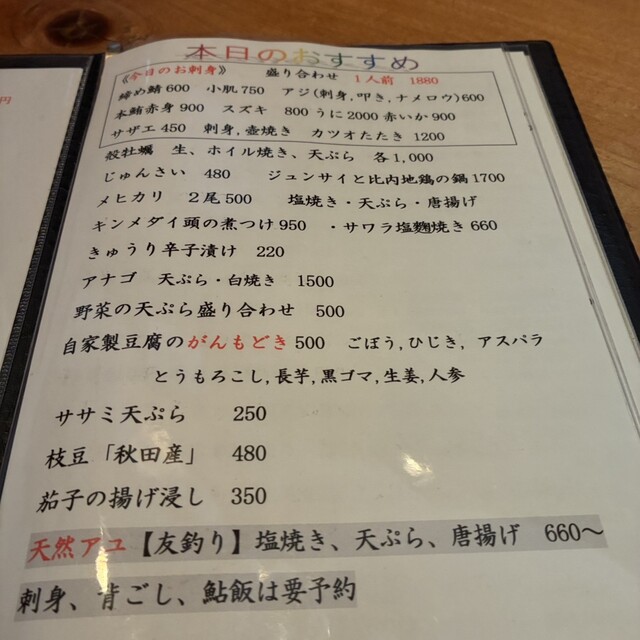 円
本日のおすすめ
《今日のお刺身》 盛り合わせ 1人前 1880
締め鯖 600 小肌 750 アジ(刺身,叩き,ナメロウ)600
本鮪赤身 900 スズキ 800 うに 2000 赤いか 900
サザエ 450 刺身,壺焼き カツオたたき 1200
殻牡蠣 生、ホイル焼き、天ぷら 各1,000
じゅんさい 480 ジュンサイと比内地鶏の鍋1700
メヒカリ 2尾500 塩焼き・天ぷら・唐揚げ
キンメダイ頭の煮つけ 950 ・サワラ塩麹焼き 660
きゅうり辛子漬け 220
アナゴ 天ぷら・白焼き 1500
野菜の天ぷら盛り合わせ 500
自家製豆腐のがんもどき 500 ごぼう,ひじき, アスパラ
とうもろこし,長芋,黒ゴマ,生姜,人参
ササミ天ぷら 250
枝豆「秋田産」 480
茄子の揚げ浸し 350
天然アユ【友釣り】塩焼き、天ぷら、唐揚げ 660～
刺身、背ごし、鮎飯は要予約